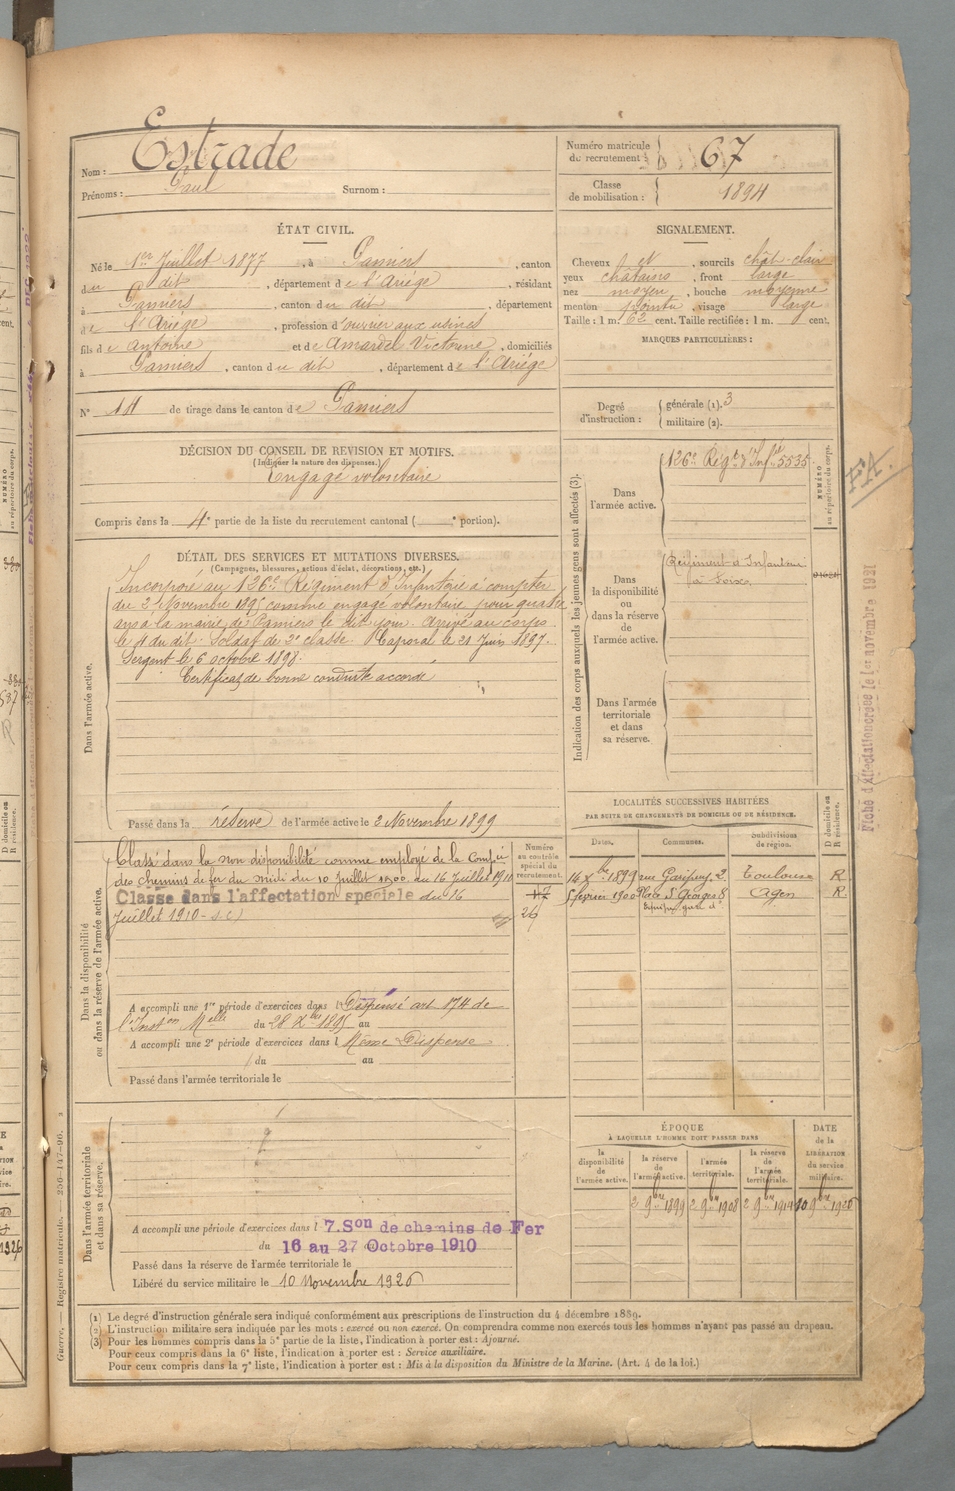 Nom : Estrade
Prénoms : Paul Surnom :
Numéro matricule de recrutement : 67
Classe de mobilisation : 1894
ÉTAT CIVIL.
Né le 1er Juillet 1877, à Pamiers, canton
du dit, département de l'Ariége, résidant
à Pamiers, canton du dit, département
de l'Ariége, profession d'ouvrier aux usines
fils de Antoine et de Amardel Victorine, domiciliés
à Pamiers, canton du dit, département de l'Ariége
N° 14 de tirage dans le canton de Pamiers
SIGNALEMENT.
Cheveux et, sourcils chât-clair
yeux châtains, front large
nez moyen, bouche moyenne
menton pointu, visage large
Taille : 1 m. 62 cent. Taille rectifiée : 1 m. cent.
MARQUES PARTICULIÈRES :
Degré d'instruction : générale (1). 3
militaire (2).
DÉCISION DU CONSEIL DE REVISION ET MOTIFS.
(Indiquer la nature des dispenses.)
Engagé volontaire
Compris dans la 4e partie de la liste du recrutement cantonal ( e portion).
DÉTAIL DES SERVICES ET MUTATIONS DIVERSES.
(Campagnes, blessures, actions d'éclat, décorations, etc.)
Dans l'armée active.
Incorporé au 126e Régiment d'Infanterie à compter
du 2 Novembre 1895 comme engagé volontaire pour quatre
ans à la mairie de Pamiers le dit jour. Arrivé au corps
le 4 du dit. Soldat de 2e classe. Caporal le 21 Juin 1897.
Sergent le 6 octobre 1898.
Certificat de bonne conduite accordé
Passé dans la réserve de l'armée active le 2 Novembre 1899
Indication des corps auxquels les jeunes gens sont affectés (3).
Dans l'armée active.
126e Régt d'Infie 5535
NUMÉRO au répertoire du corps.
Dans la disponibilité ou dans la réserve de l'armée active.
Régiment d'Infanterie
Dans l'armée territoriale et dans sa réserve.
F.A.
Fiche d'Affectation créée le 1er novembre 1921
Dans la disponibilité ou dans la réserve de l'armée active.
Classé dans la non disponibilité comme employé de la Compie
des chemins de fer du midi du 10 Juillet 1900 au 16 Juillet 1910
Classe dans l'affectation spéciale du 16
Juillet 1910 -
Numéro au contrôle spécial du recrutement.
A accompli une 1re période d'exercices dans l Dispensé art. 174 de
l'Inston Melle du 28 Xbre 1895 au
A accompli une 2e période d'exercices dans l Même Dispense
du au
Passé dans l'armée territoriale le
LOCALITÉS SUCCESSIVES HABITÉES
PAR SUITE DE CHANGEMENTS DE DOMICILE OU DE RÉSIDENCE.
Dates. Communes. Subdivisions de région. D domicile ou R résidence.
16 Xbre 1899 rue Garipuy, 2. Toulouse R
5 février 1900 Place St Georges 8 Agen R.
Dans l'armée territoriale et dans sa réserve.
A accompli une période d'exercices dans l 7.Son de chemins de Fer
du 16 au 27 Octobre 1910
Passé dans la réserve de l'armée territoriale le
Libéré du service militaire le 10 Novembre 1926
ÉPOQUE
À LAQUELLE L'HOMME DOIT PASSER DANS
la disponibilité de l'armée active.
la réserve de l'armée active.
l'armée territoriale.
la réserve de l'armée territoriale.
DATE de la LIBÉRATION du service militaire.
2 9bre 1899 2 9bre 1908 2 9bre 1914 10 9bre 1926
(1) Le degré d'instruction générale sera indiqué conformément aux prescriptions de l'instruction du 4 décembre 1889.
(2) L'instruction militaire sera indiquée par les mots : exercé ou non exercé. On comprendra comme non exercés tous les hommes n'ayant pas passé au drapeau.
(3) Pour les hommes compris dans la 5e partie de la liste, l'indication à porter est : Ajourné.
Pour ceux compris dans la 6e liste, l'indication à porter est : Service auxiliaire.
Pour ceux compris dans la 7e liste, l'indication à porter est : Mis à la disposition du Ministre de la Marine. (Art. 4 de la loi.)
Guerre. — Registre matricule. — 256-147-96.